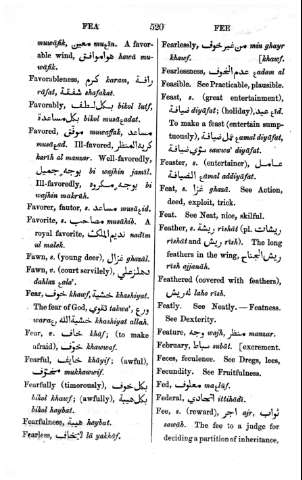 FEA 520 FEE
muwāfik, معين muɛīn. A favor-
able wind, هوا موافق hawā mu-
wāfik.
Favorableness, كرم karam, رافة
rāfat, شفقة shafakat.
Favorably, بكل لطف bikol lutf,
بكل مساعدة bikol musāɛadat.
Favored, موفق muwaffak, مساعد
musāɛad. Ill-favored, كريه المنظر
karīh al manzar. Well-favoredly,
بوجه جميل bi wajhin jamīl.
Ill-favoredly, بوجه مكروه bi
wajhin makrūh.
Favorer, fautor, s. مساعد musāɛid.
Favorite, s. مصاحب musāhib. A
royal favorite, نديم الملك nadīm
al malek.
Fawn, s. (young deer), غزال ghazāl.
Fawn, v. (court servilely),
Fear, خوف khawf, خشية khashiyat.
The fear of God, تقوى takwa', ورع
waraɛ, خشية الله khashiyat allah.
Fear, v. خاف khāf; (to make
afraid), خوّف khawwaf.
Fearful, خايف khāyif; (awful),
مخوّف mukhawwif.
Fearfully (timorously), بكل خوف
bikol khawf; (awfully), بكل هيبة
bikol haybat.
Fearfulness, هيبة haybat.
Fearless, لا يخاف lā yakhāf.
Fearlessly, من غير خوف min ghayr
khawf. [khawf.
Fearlessness, عدم الخوف ɛadam al
Feasible. See Practicable, plausible.
Feast, s. (great entertainment),
ضيافة diyāfat; (holiday), عيد ɛīd.
To make a feast (entertain sump-
tuously), عمل ضيافة ɛamal diyāfat,
سوّى ضيافة sawwa' diyāfat.
Feaster, s. (entertainer), عامل
الضيافة ɛāmal addiyāfat.
Feat, s. غزا ghazā. See Action,
deed, exploit, trick.
Feat. See Neat, nice, skilful.
Feather, s. ريشة rīshāt (pl. ريشات
rīshāt and ريش rīsh). The long
feathers in the wing, ريش الجناح
rīsh ajjanāh.
Feathered (covered with feathers),
له ريش laho rīsh.
Featly. See Neatly.—Featness.
See Dexterity.
Feature, وجه wajh, منظر manzar.
February, شباط subāt. [excrement.
Feces, feculence. See Dregs, lees,
Fecundity. See Fruitfulness.
Fed, معلوف maɛlūf.
Federal, اتحادي ittihādī.
Fee, s. (reward), اجر ajr, ثواب
sawāb. The fee to a judge for
deciding a partition of inheritance,